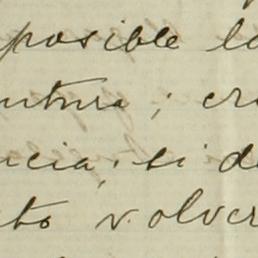 posible lo
ntura; cre
ncia; si de
to volver